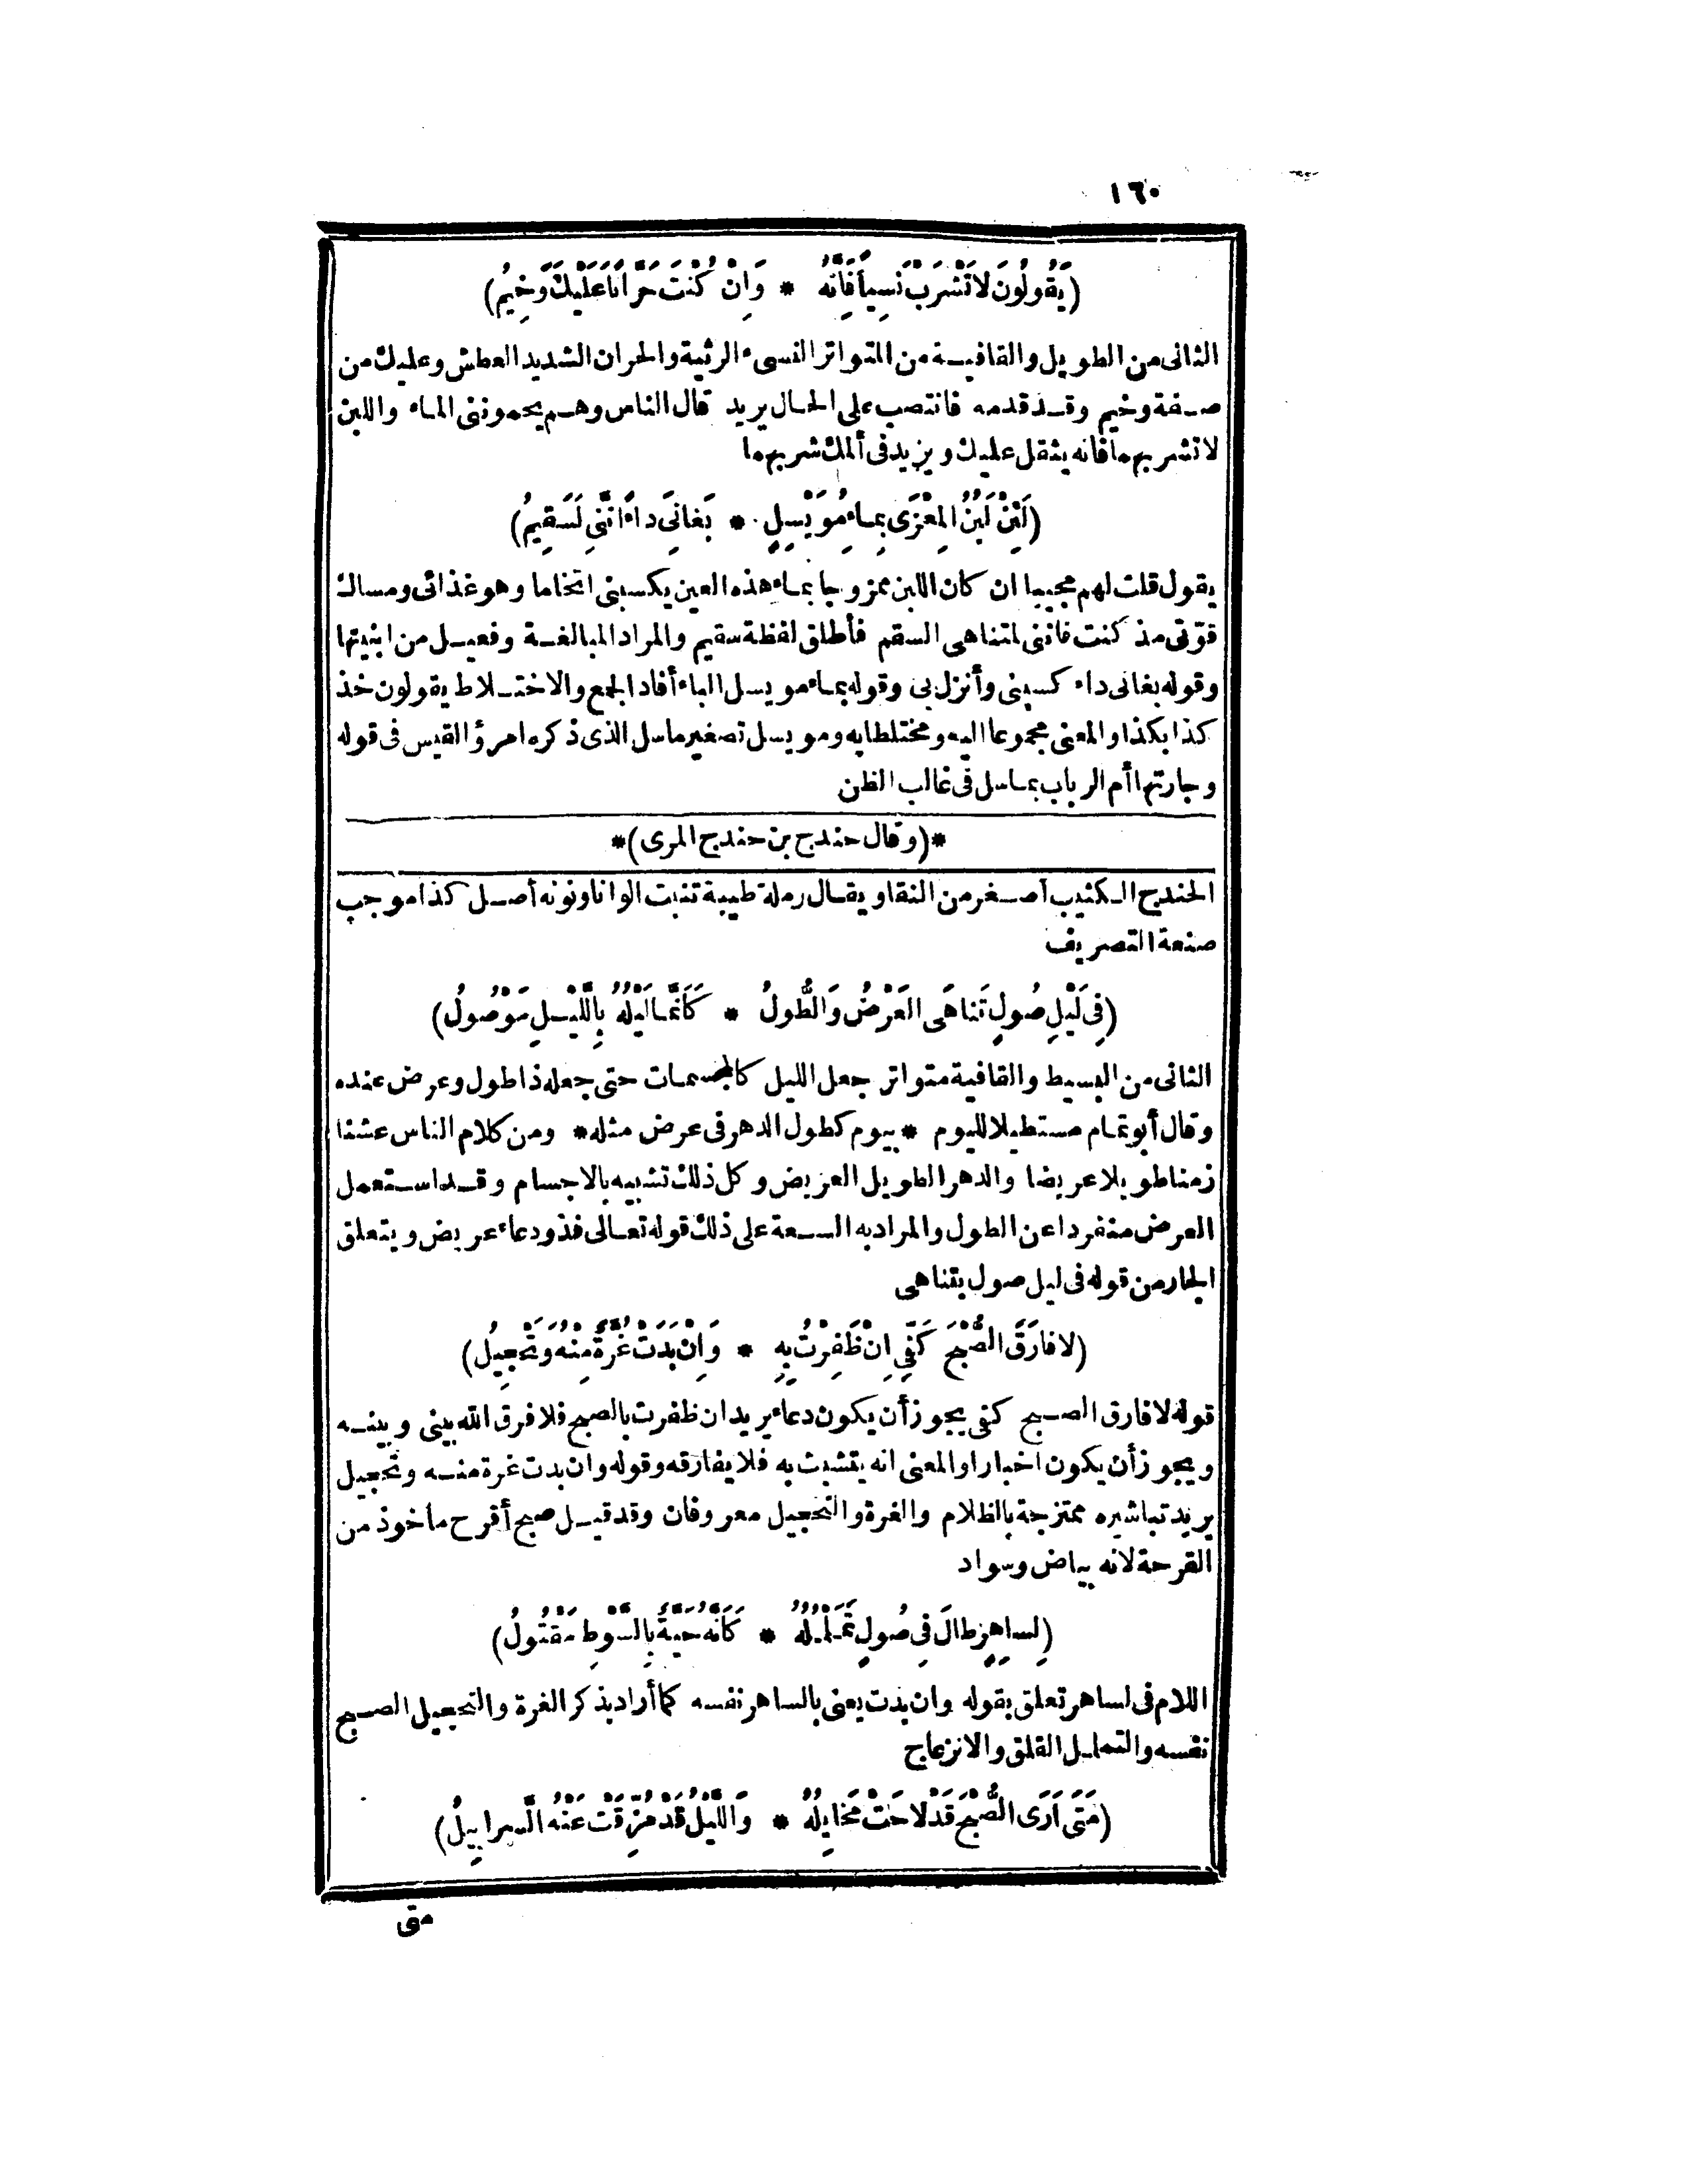 ١٦٠
(يَقُولُونَ لَا تَشْرَبْ نَسِيأً فَإِنَّهُ * وَإِنْ كُنْتَ حَرَّانًا عَلَيْكَ وَخِيمُ)
الثانى من الطويل والقافية من المتواتر النسىء الرثيئة والحران الشديد العطش وعليك من
صفة وخيم وقد قدمه فانتصب على الحال يريد قال الناس وهم يحموننى الماء واللبن
لا تشربهما فانه يثقل عليك ويزيد فى ألمك شربهما
(لَئِنْ لَبَنُ المِعْزَى بِمَاءِ مُوَيْسِلٍ * بَغَانِىَ دَاءً إِنَّنِى لَسَقِيمُ)
يقول قلت لهم مجيبا ان كان اللبن ممزوجا بماء هذه العين يكسبنى اتخاما وهو غذائى ومساك
قوّتى مذ كنت فاننى لمتناهى السقم فأطلق لفظة سقيم والمراد المبالغة وفعيل من ابنيتها
وقوله بغانى داء كسبنى وأنزل بى وقوله بماء مويسل الباء أفاد الجمع والاختلاط يقولون خذ
كذا بكذا والمعنى مجموعا اليه ومختلطا به ومويسل تصغير ماسل الذى ذكره امرؤ القيس فى قوله
وجارتها أم الرباب بماسل فى غالب الظن
*(وقال حندج بن حندج المرى)*
الحندج الكثيب أصغر من النقا ويقال رملة طيبة تنبت الوانا ونونه أصل كذا موجب
صنعة التصريف
(فِى لَيْلِ صُولٍ تَنَاهَى العَرْضُ وَالطُّولُ * كَأَنَّمَا لَيْلُهُ بِاللَّيْلِ مَوْصُولُ)
الثانى من البسيط والقافية متواتر جعل الليل كالمجسمات حتى جعله ذا طول وعرض عنده
وقال أبو تمام مستطيلا لليوم * بيوم كطول الدهر فى عرض مثله * ومن كلام الناس عشنا
زمنا طويلا عريضا والدهر الطويل العريض وكل ذلك تشبيه بالاجسام وقد استعمل
العرض منفردا عن الطول والمراد به السعة على ذلك قوله تعالى فذو دعاء عريض ويتعلق
الجار من قوله فى ليل صول بتناهى
(لَا فَارَقَ الصُّبْحَ كَفِّى إِنْ ظَفِرْتُ بِهِ * وَإِنْ بَدَتْ غُرَّةٌ مِنْهُ وَتَحْجِيلُ)
قوله لا فارق الصبح كفى يجوز أن يكون دعاء يريد ان ظفرت بالصبح فلا فرق الله بينى وبينه
ويجوز أن يكون اخبارا والمعنى انه يتشبث به فلا يفارقه وقوله وان بدت غرة منه وتحجيل
يريد تباشيره ممتزجة بالظلام والغرة والتحجيل معروفان وقد قيل صبح أقرح مأخوذ من
القرحة لانه بياض وسواد
(لِسَاهِرٍ طَالَ فِى صُولٍ تَمَلْمُلُهُ * كَأَنَّهُ حَيَّةٌ بِالسَّوْطِ مَقْتُولُ)
اللام فى لساهر تعلق بقوله وان بدت يعنى بالساهر نفسه كما أراد بذكر الغرة والتحجيل الصبح
نفسه والتململ القلق والانزعاج
(مَتَى أَرَى الصُّبْحَ قَدْ لَاحَتْ مَخَايِلُهُ * وَاللَّيْلُ قَدْ مُزِّقَتْ عَنْهُ السَّرَابِيلُ)
متى